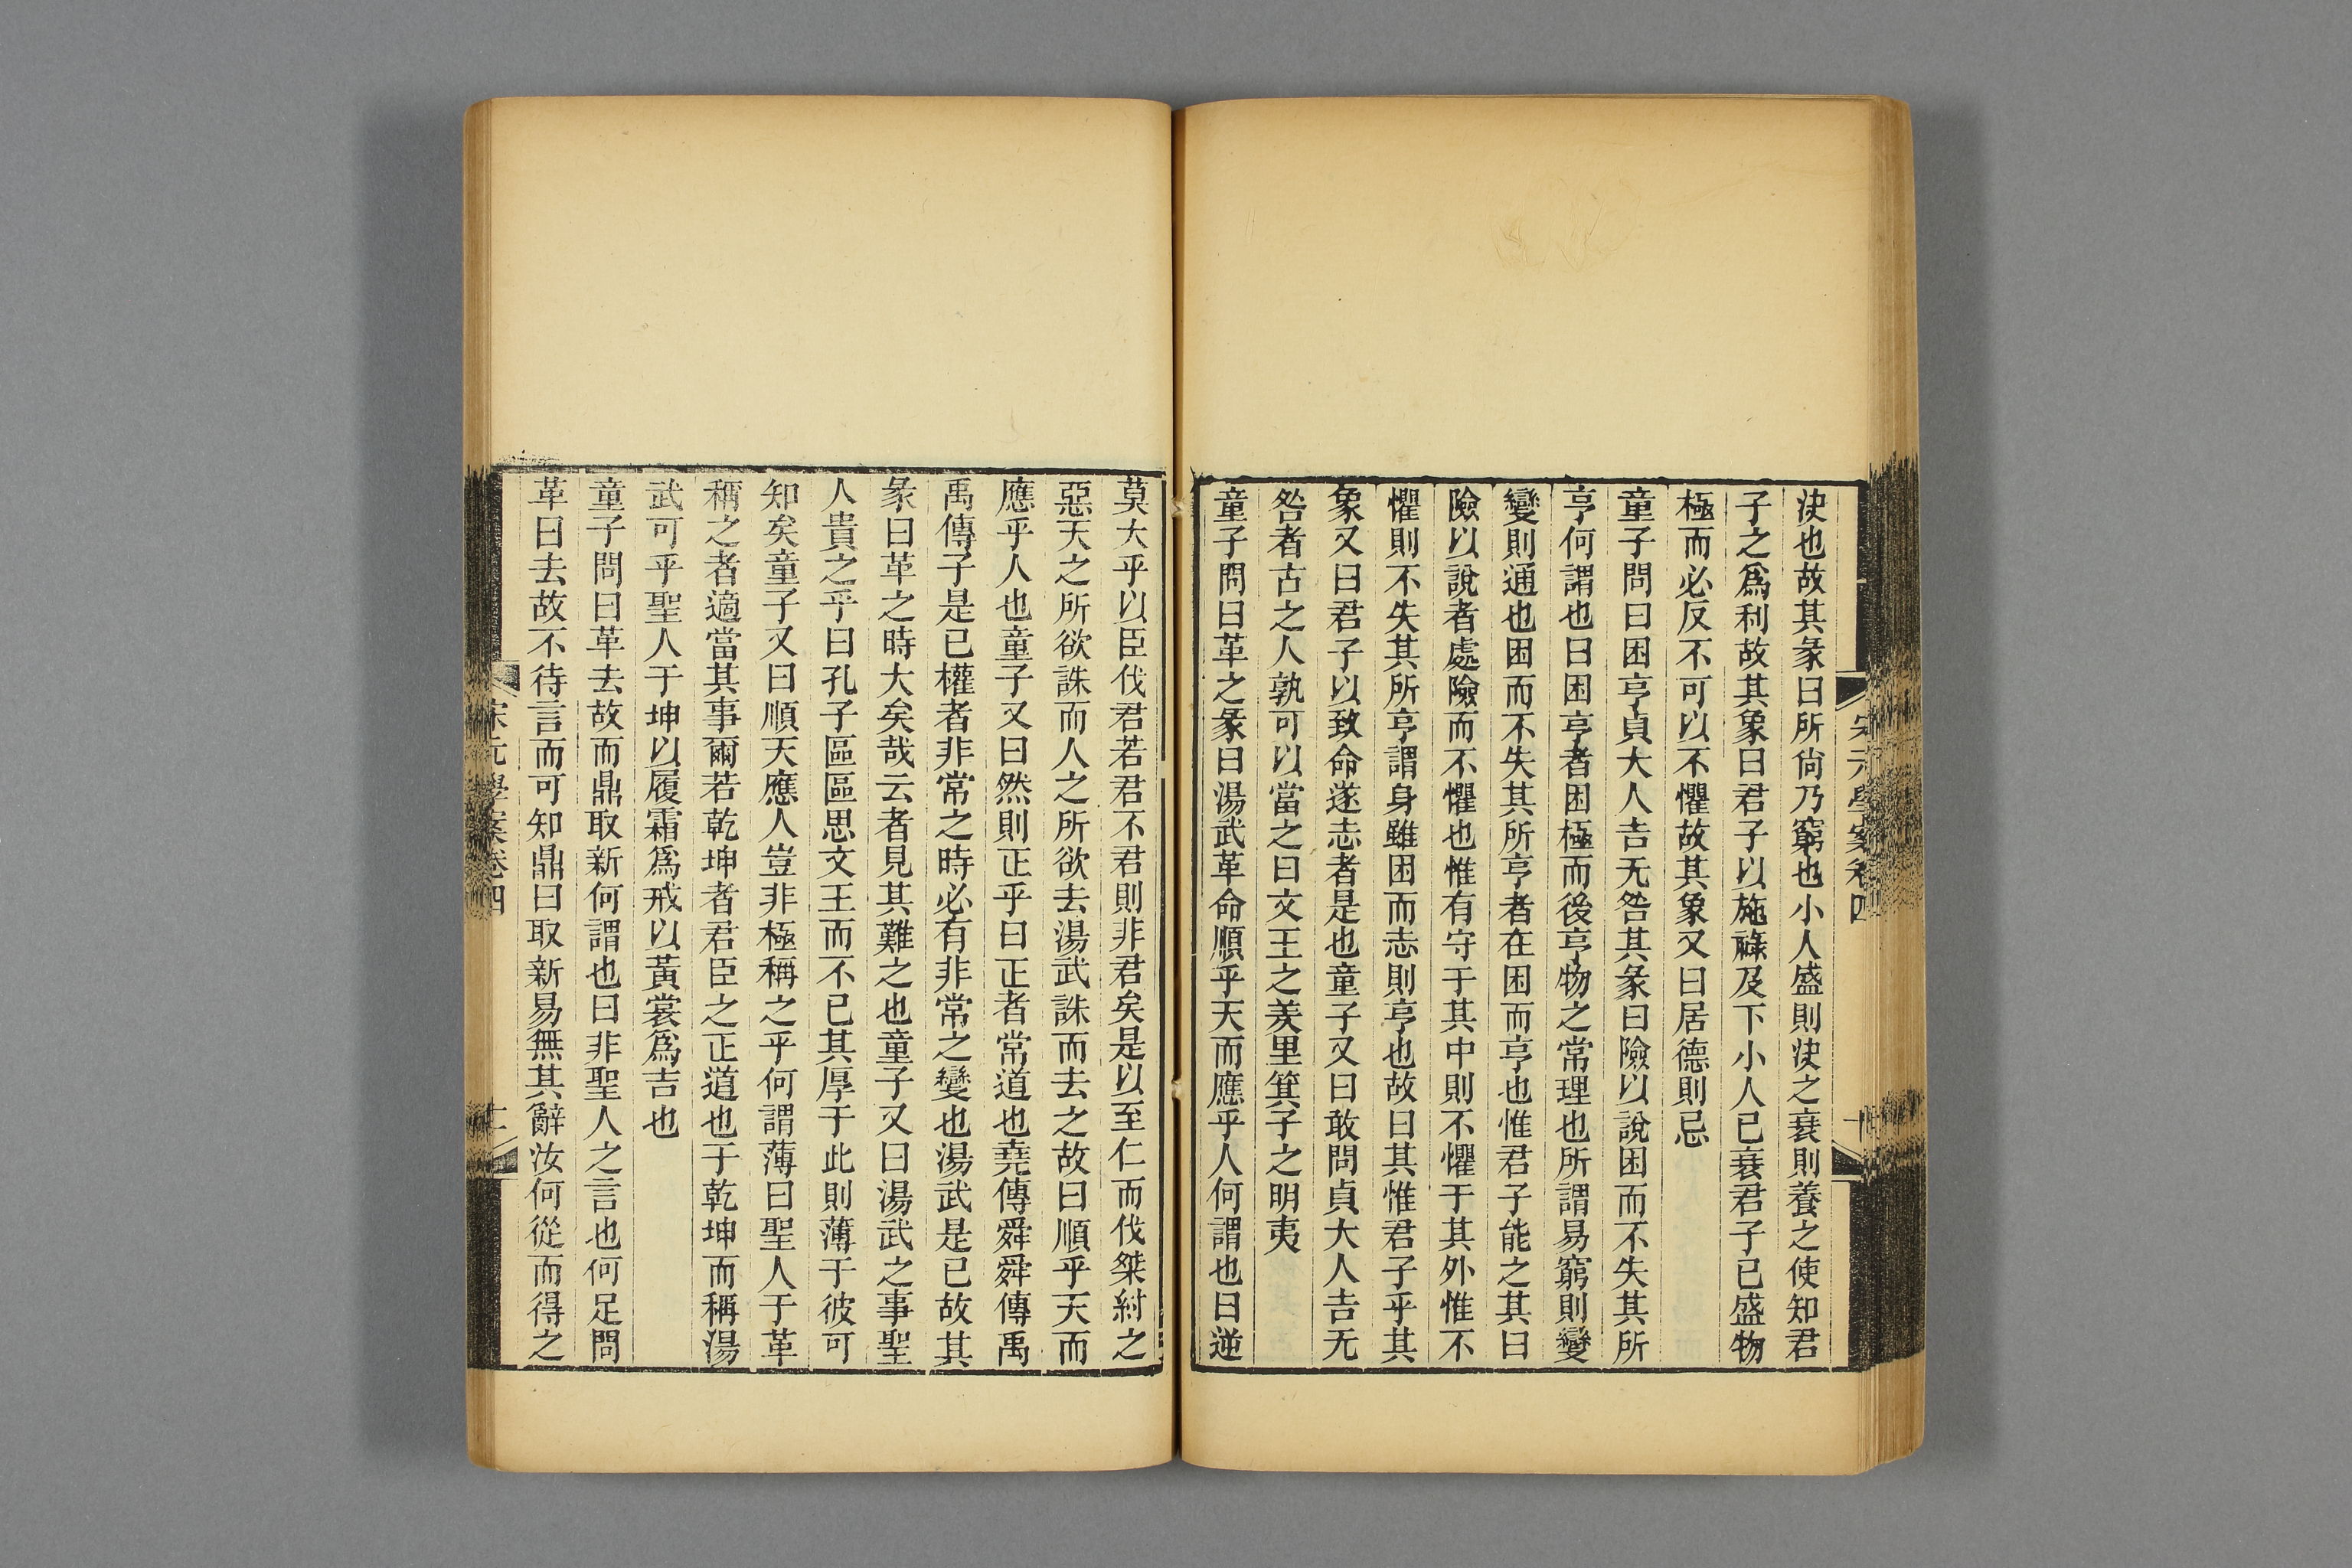 宋元學案卷四
十
決也故其彖曰所尙乃窮也小人盛則決之衰則養之使知君
子之爲利故其象曰君子以施祿及下小人已衰君子已盛物
極而必反不可以不懼故其象又曰居德則忌
童子問曰困亨貞大人吉无咎其彖曰險以說困而不失其所
亨何謂也曰困亨者困極而後亨物之常理也所謂易窮則變
變則通也困而不失其所亨者在困而亨也惟君子能之其曰
險以說者處險而不懼也惟有守于其中則不懼于其外惟不
懼則不失其所亨謂身雖困而志則亨也故曰其惟君子乎其
象又曰君子以致命遂志者是也童子又曰敢問貞大人吉无
咎者古之人孰可以當之曰文王之羑里箕子之明夷
童子問曰革之彖曰湯武革命順乎天而應乎人何謂也曰逆
莫大乎以臣伐君若君不君則非君矣是以至仁而伐桀紂之
惡天之所欲誅而人之所欲去湯武誅而去之故曰順乎天而
應乎人也童子又曰然則正乎曰正者常道也堯傳舜舜傳禹
禹傳子是已權者非常之時必有非常之變也湯武是已故其
彖曰革之時大矣哉云者見其難之也童子又曰湯武之事聖
人貴之乎曰孔子區區思文王而不已其厚于此則薄于彼可
知矣童子又曰順天應人豈非極稱之乎何謂薄曰聖人于革
稱之者適當其事爾若乾坤者君臣之正道也于乾坤而稱湯
武可乎聖人于坤以履霜爲戒以黃裳爲吉也
童子問曰革去故而鼎取新何謂也曰非聖人之言也何足問
革曰去故不待言而可知鼎曰取新易無其辭汝何從而得之
宋元學案卷四